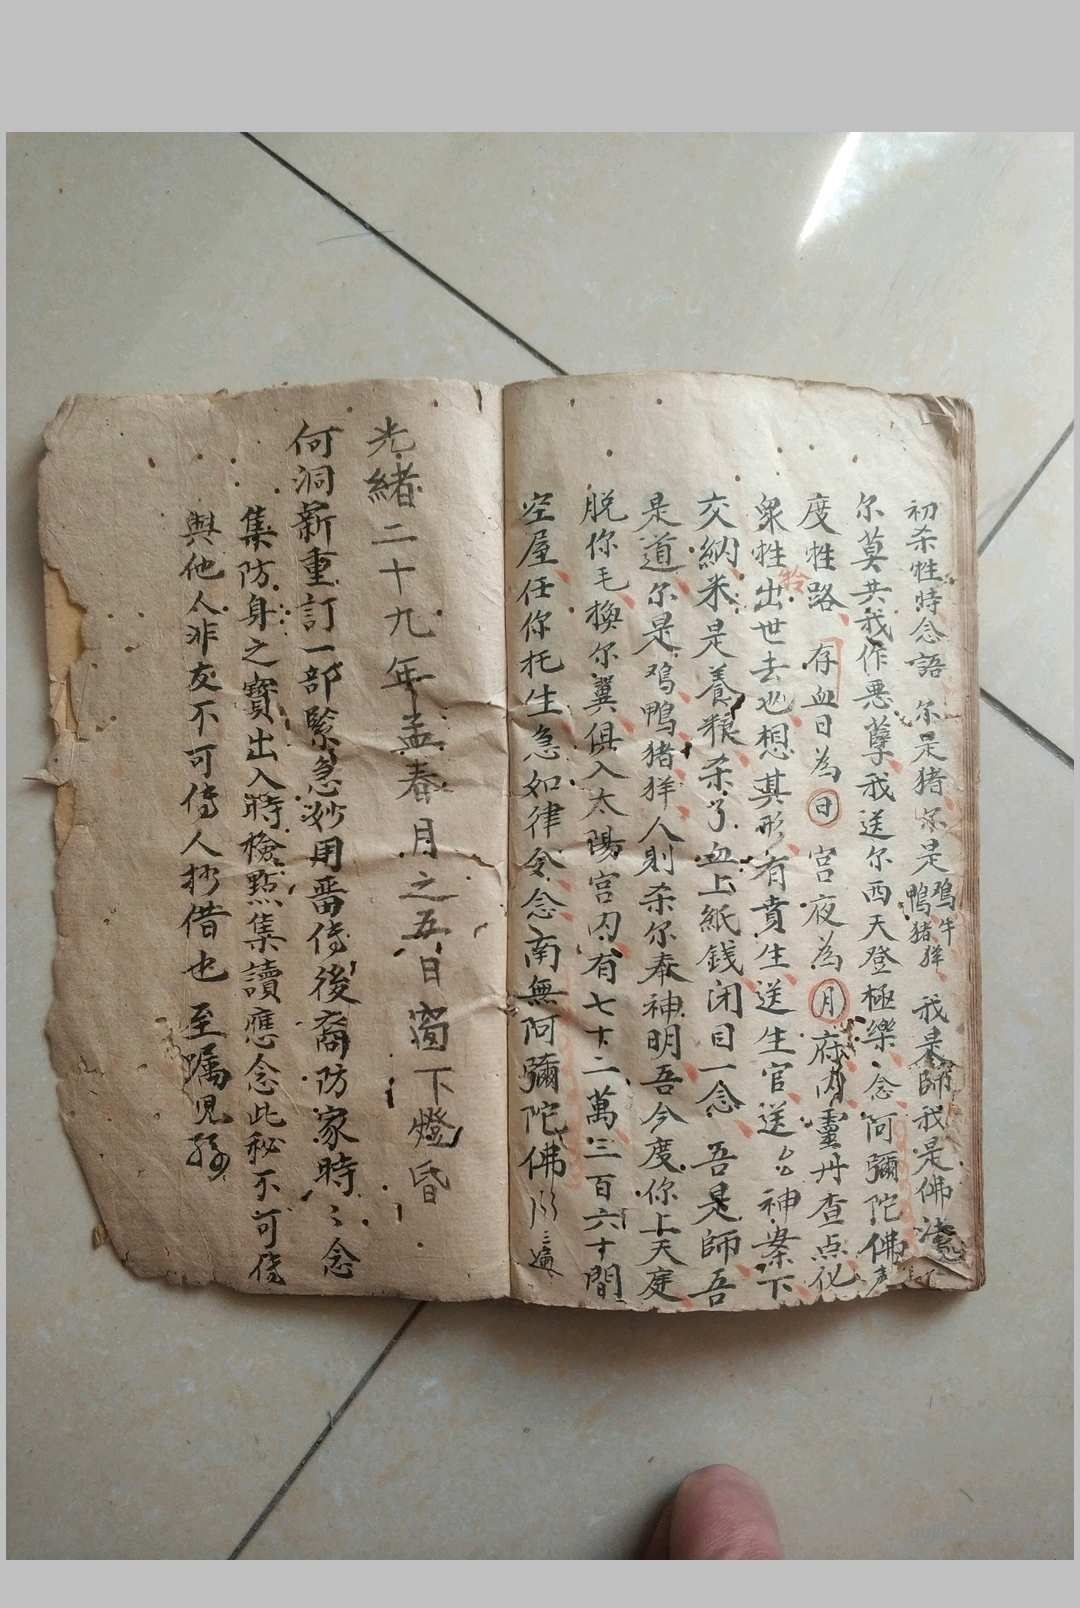 初杀牲時念語 尔是猪尔是鴨鷄猪牛羊 我是師我是佛
尔莫共我作悪孽我送尔西天登極樂念阿彌陀佛
度牲路 存血日為日宮夜為月府内靈丹查点化
衆牲出世去必想其形有賁生送生官送亡神案下
交納米是養粮杀了血上紙錢闭目一念 吾是師吾
是道尔是鴉鴨猪羊人則杀尔奉神明吾今度你上天庭
脱你毛換尔翼俱入太陽宮内有七十二萬三百六十間
空屋任你托生急如律令念南無阿彌陀佛 三遍
光緒二十九年孟春月之五日窗下燈昏
何洞新重訂一部緊急妙用番传後裔防家時々念
集防身之寶出入時檢點集讀應念此秘不可传
與他人非友不可传人抄借也 至嘱児孫